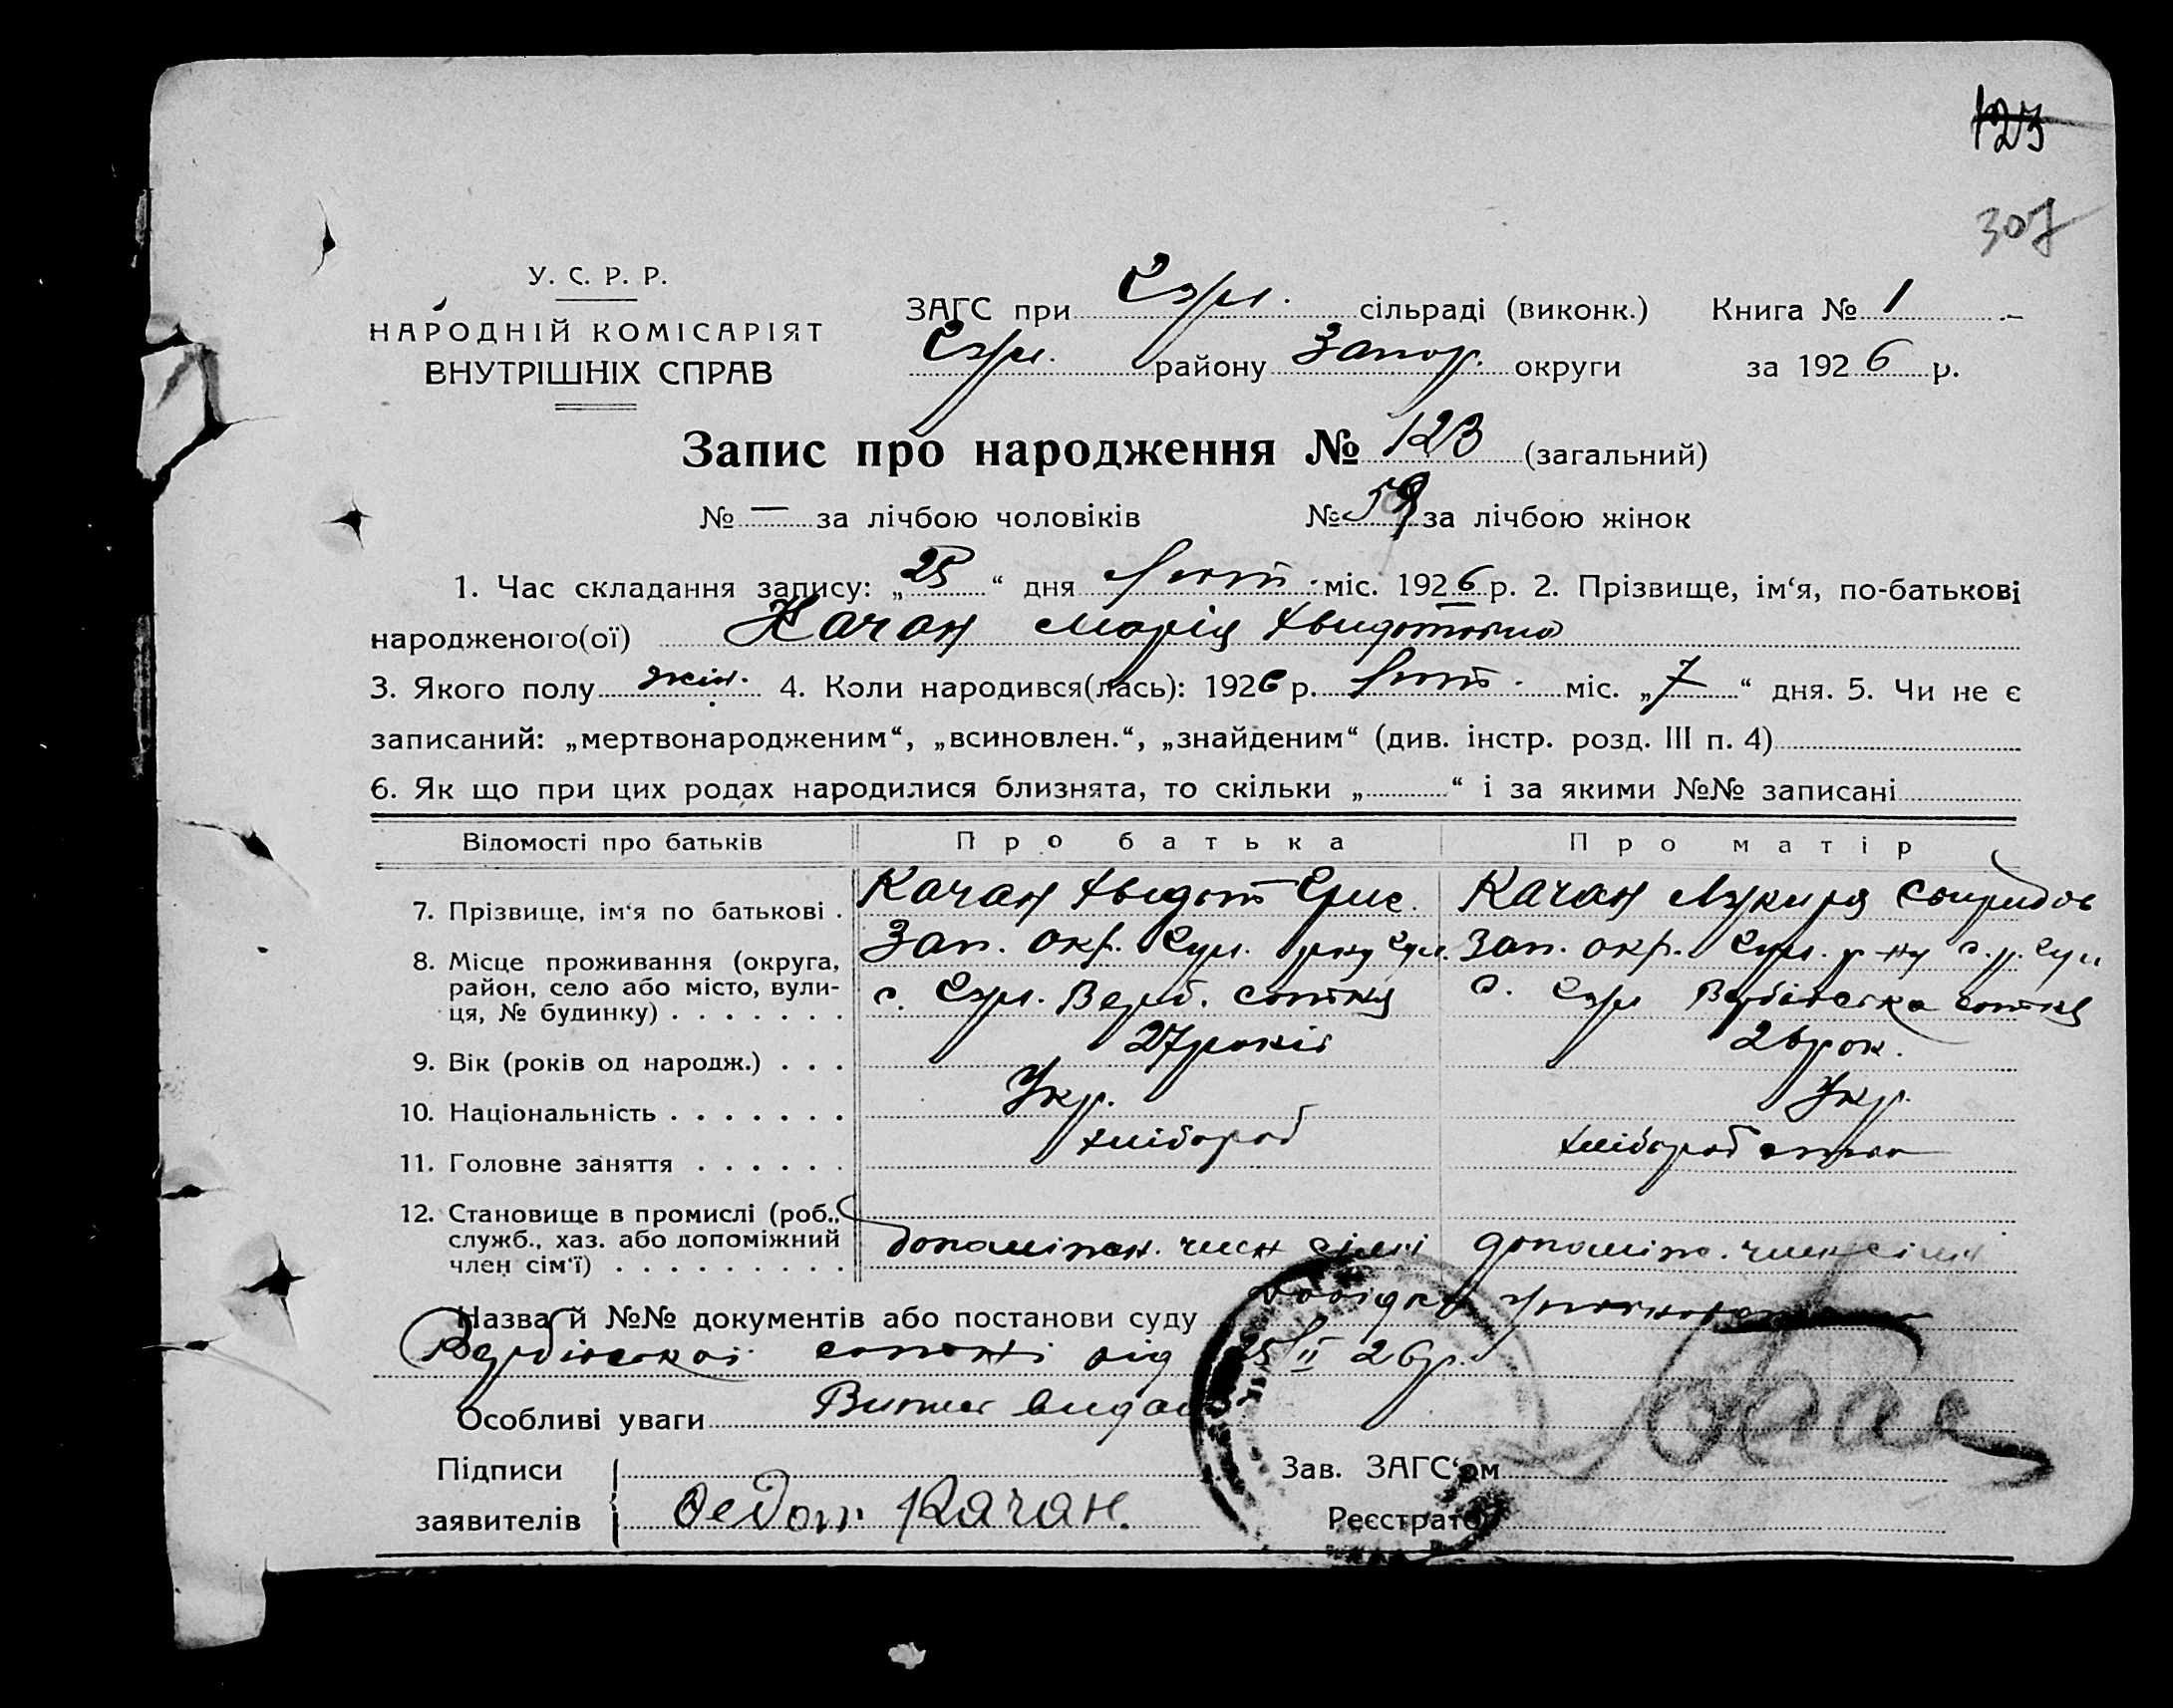 123
307
У. С. Р. Р.
НАРОДНІЙ КОМІСАРІЯТ
ВНУТРІШНІХ СПРАВ
ЗАГС при Сэрл. сільраді (виконк.) Книга № 1
района Запор. округи за 1926 р.
Запис про народження № 123 (загальний)
№ — за лічбою чоловіків № 59 за лічбою жінок
1. Час складання запису: „25“ дня Лют. міс. 1926 р. 2. Прізвище, ім‘я, по-батькові
народженого(ої) Качан Марія Хвидотовна
3. Якого полу жін. 4. Коли народився(лась): 1926 р. Лют. міс. „7“ дня. 5. Чи не є
записаний: „мертвонародженим“, „всиновлен.“, „знайденим“ (див. інстр. розд. III п. 4)
6. Як що при цих родах народилися близнята, то скільки „ “ і за якими №№ записані
Відомості про батьків Про батька Про матір
7. Прізвище, ім‘я по батькові . Качан Хвидот Качан Лукиря Спиридов
8. Місце проживання (округа, Зап. окр. Зап. окр.
район, село або місто, вули- с. Верб. сотня с. Вербівська сотня
ця, № будинку) . . . . . . .
9. Вік (років од народж.) . . . 27 років 26 рок.
10. Національність . . . . . . . Укр. Укр.
11. Головне заняття . . . . . . хлібороб хліборобство
12. Становище в промислі (роб.,
служб., хаз. або допоміжний допоміжн. член сімї допоміж. член сімї
член сім‘ї) . . . . . . . . .
Назва й №№ документів або постанови суду Довідка Уповноваж
Вербівської сотні від 25/II 26 р.
Особливі уваги Витяг видан
Підписи Зав. ЗАГС‘ом
заявителів Федот Качан. Реєстратор